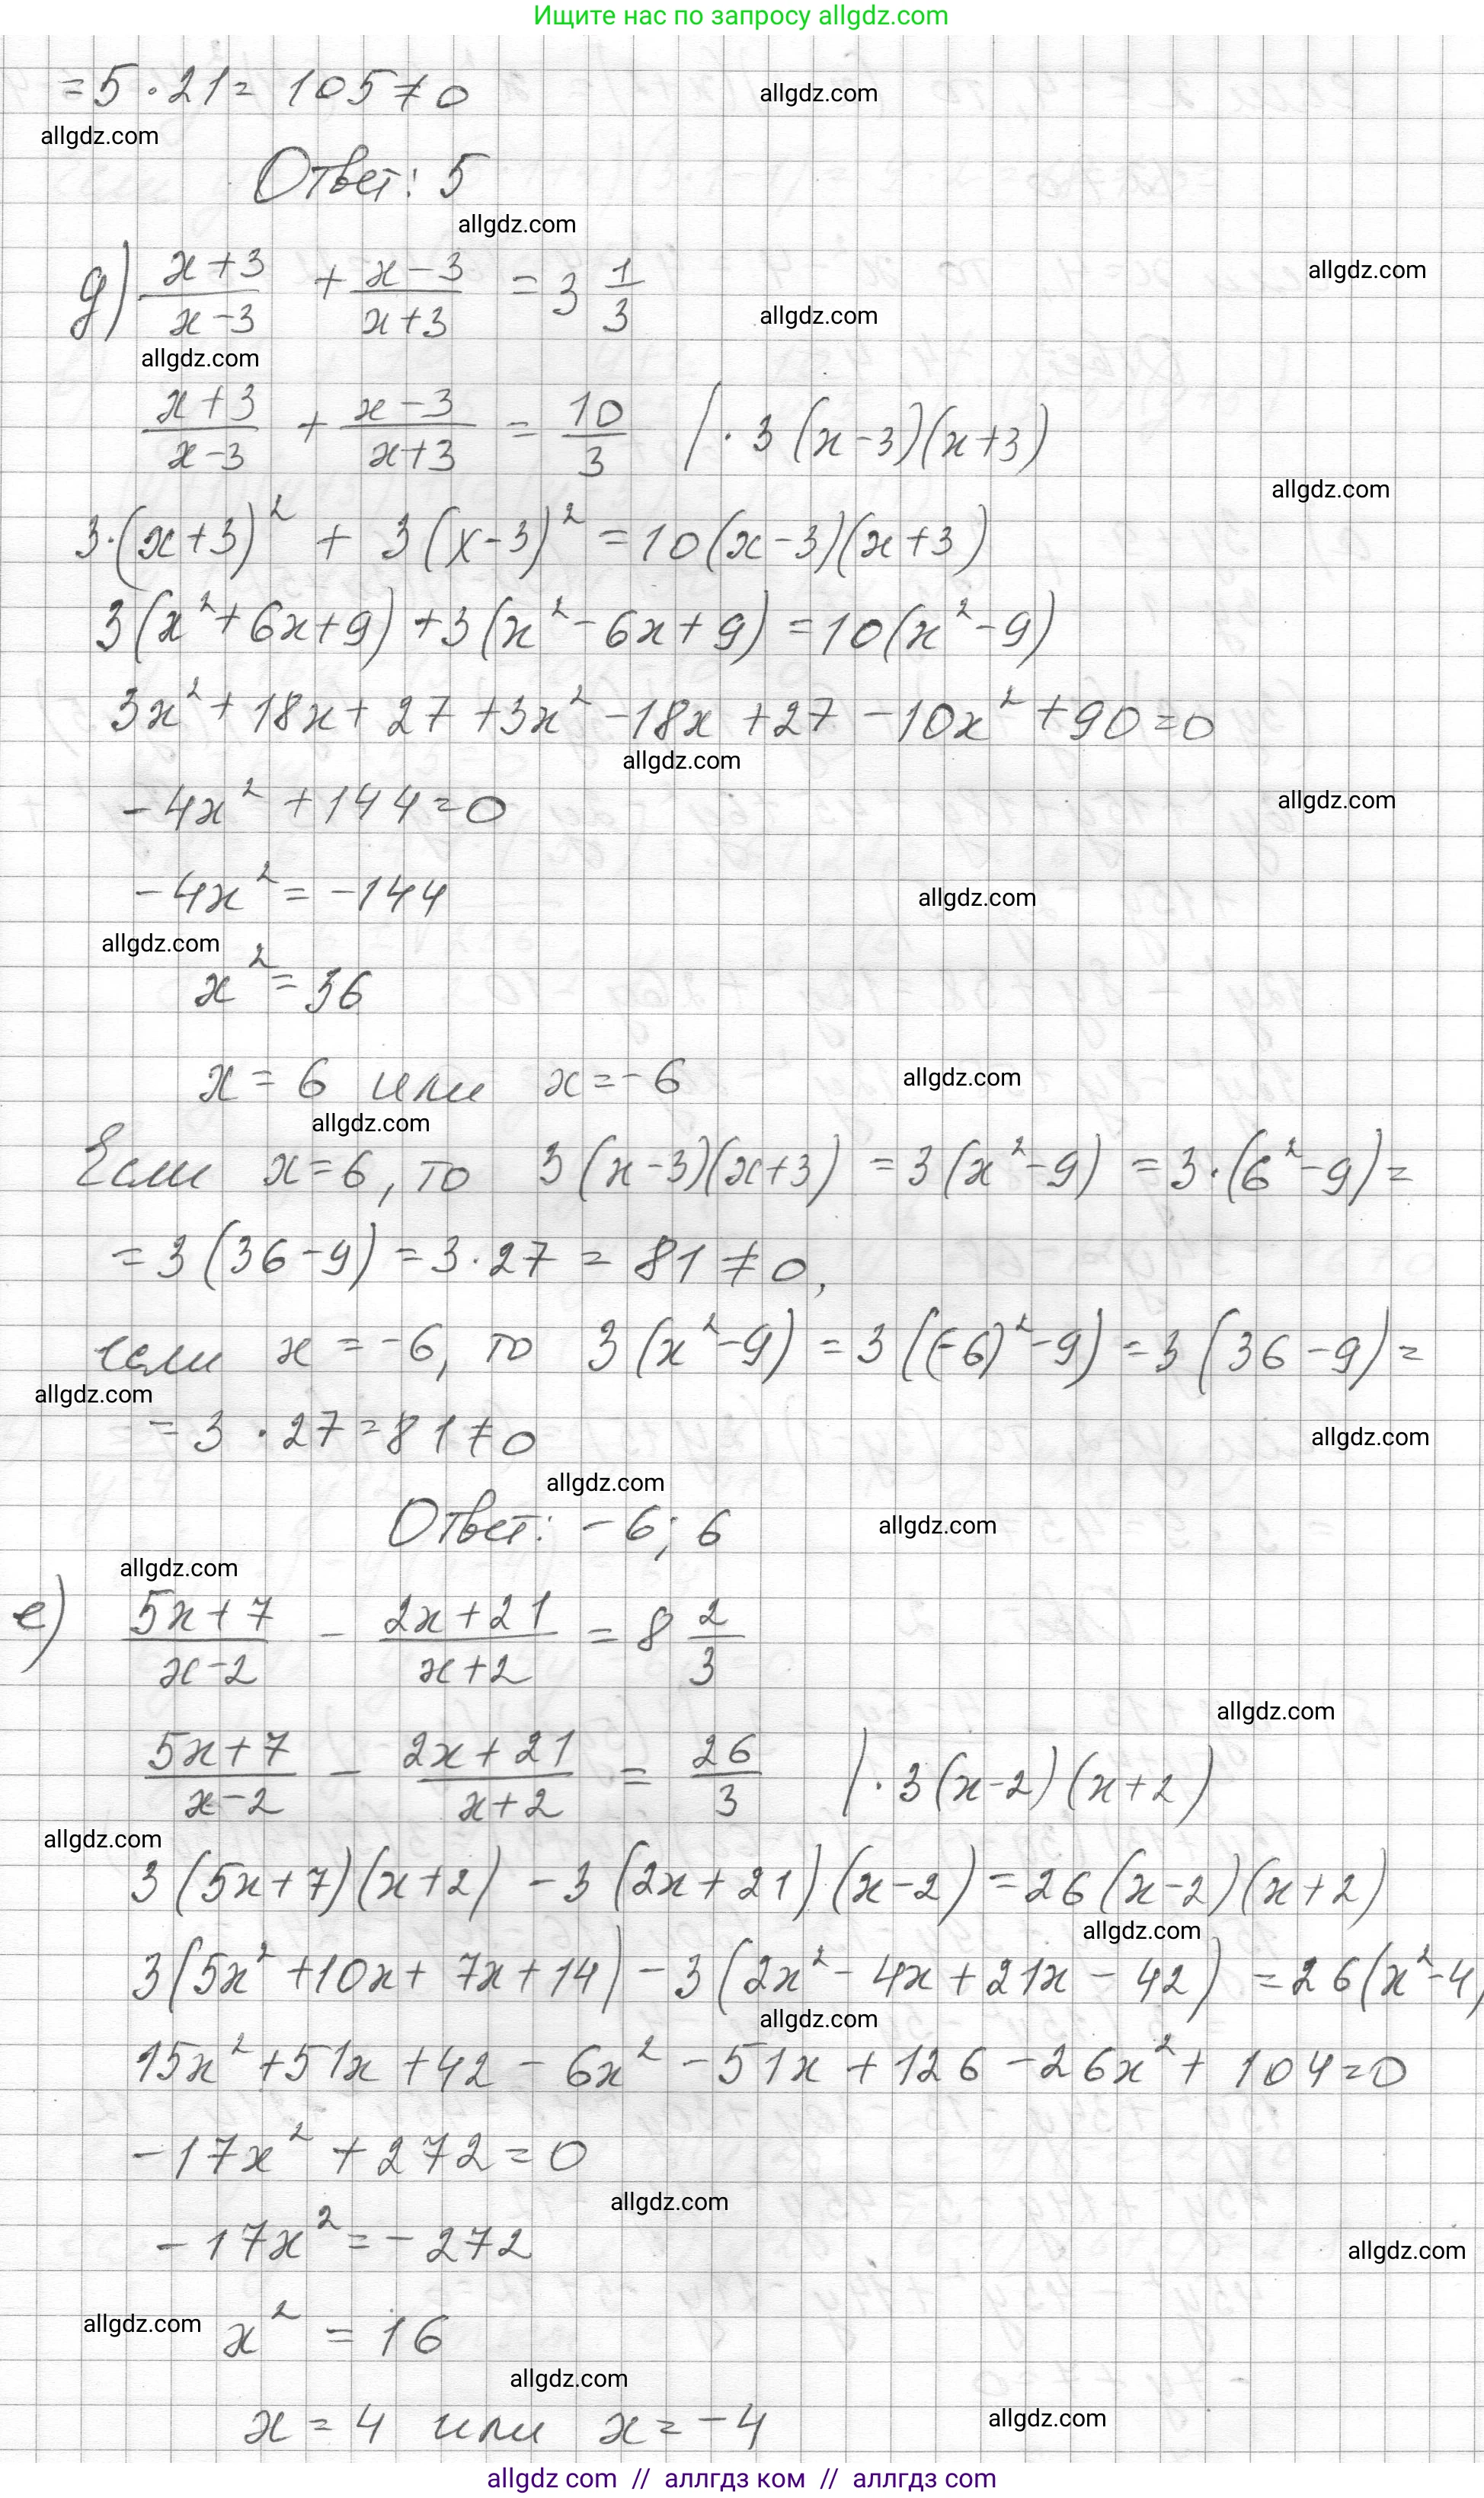 Ищите нас по запросу allgdz.com
= 5 · 21 = 105 ≠ 0
allgdz.com
allgdz.com
Ответ: 5
allgdz.com
д) (x+3)/(x-3) + (x-3)/(x+3) = 3 1/3
allgdz.com
allgdz.com
allgdz.com
(x+3)/(x-3) + (x-3)/(x+3) = 10/3 | · 3(x-3)(x+3)
allgdz.com
3·(x+3)² + 3(x-3)² = 10(x-3)(x+3)
3(x²+6x+9) + 3(x²-6x+9) = 10(x²-9)
3x² + 18x + 27 + 3x² - 18x + 27 - 10x² + 90 = 0
allgdz.com
-4x² + 144 = 0
allgdz.com
-4x² = -144
allgdz.com
allgdz.com
x² = 36
x = 6 или x = -6
allgdz.com
allgdz.com
Если x = 6, то 3(x-3)(x+3) = 3(x²-9) = 3·(6²-9) =
= 3(36-9) = 3·27 = 81 ≠ 0,
если x = -6, то 3(x²-9) = 3((-6)²-9) = 3(36-9) =
allgdz.com
= 3 · 27 = 81 ≠ 0
allgdz.com
allgdz.com
Ответ: -6; 6
allgdz.com
allgdz.com
е) (5x+7)/(x-2) - (2x+21)/(x+2) = 8 2/3
allgdz.com
(5x+7)/(x-2) - (2x+21)/(x+2) = 26/3 | · 3(x-2)(x+2)
allgdz.com
3(5x+7)(x+2) - 3(2x+21)(x-2) = 26(x-2)(x+2)
allgdz.com
3(5x² + 10x + 7x + 14) - 3(2x² - 4x + 21x - 42) = 26(x²-4)
allgdz.com
15x² + 51x + 42 - 6x² - 51x + 126 - 26x² + 104 = 0
-17x² + 272 = 0
allgdz.com
-17x² = -272
allgdz.com
allgdz.com
x² = 16
allgdz.com
x = 4 или x = -4
allgdz.com
allgdz com // аллгдз ком // аллгдз com